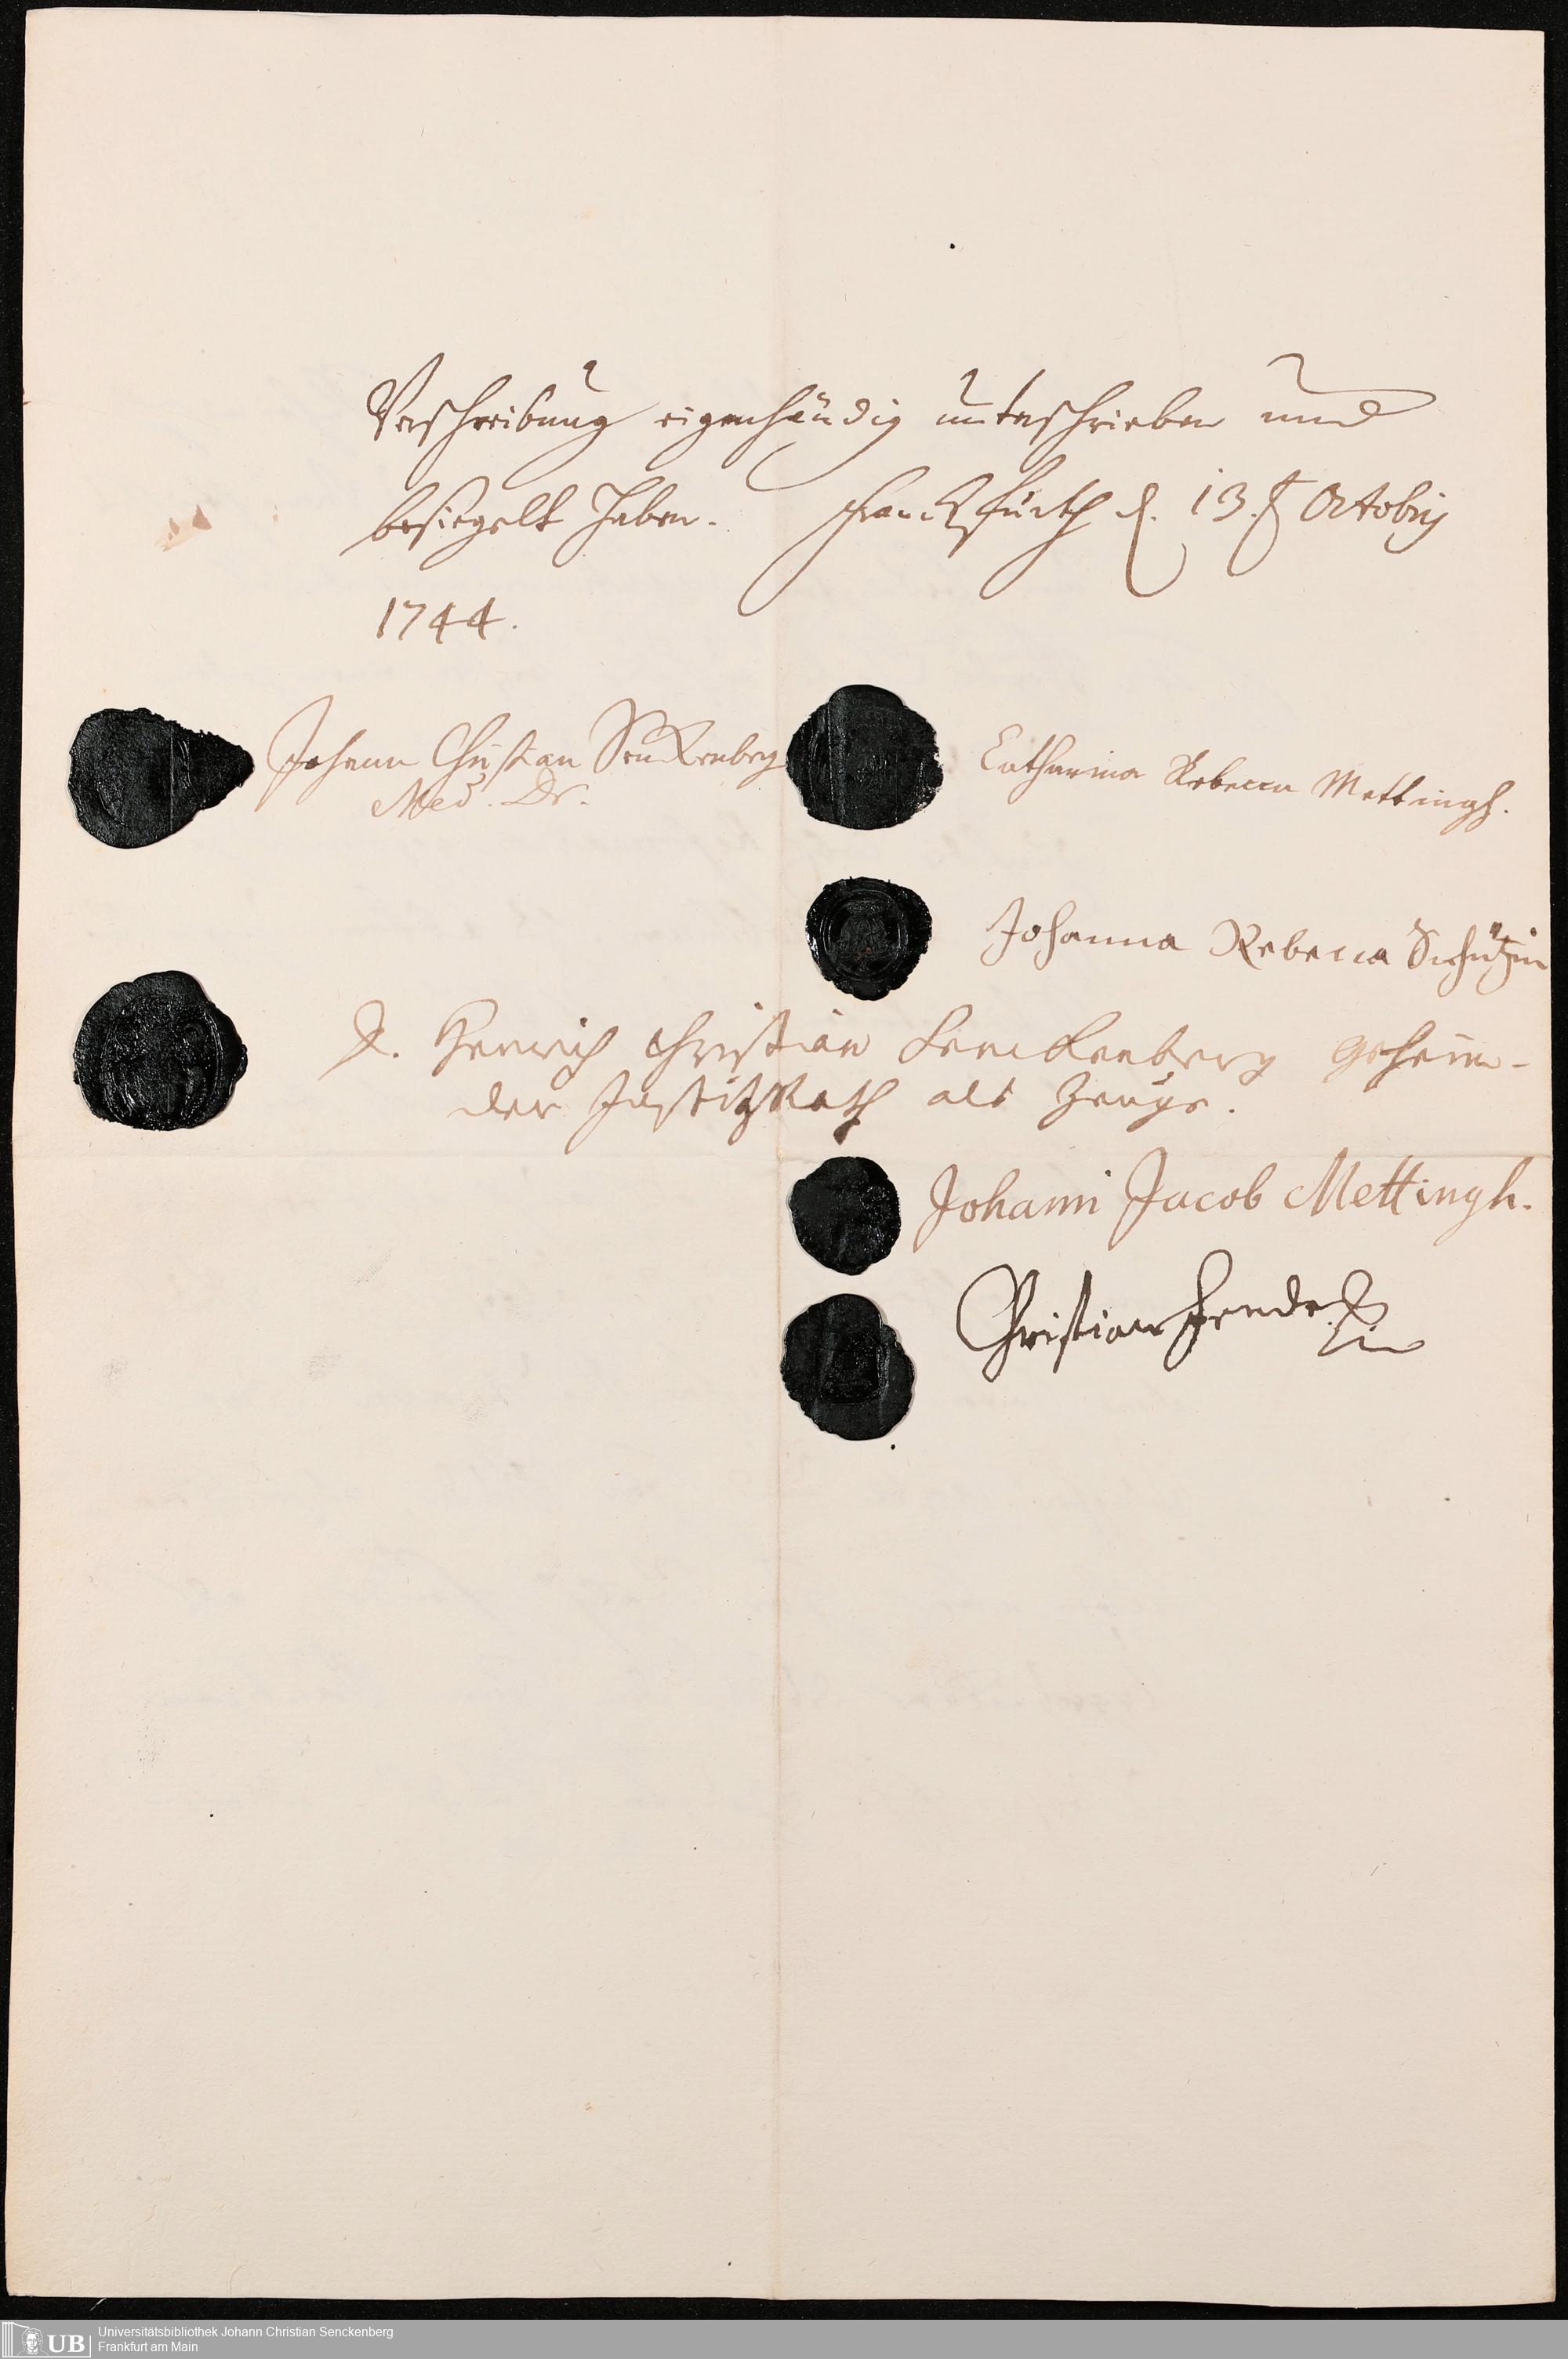 Verschreibung eigenhändig unterschrieben und
besiegelt haben. Franckfurth d. 13.t Octobris
1744.
Johann Christian Senckenberg
Med. Dr.
Catharina Rebecca Mettingh.
Johanna Rebecca Schützin
D. Henrich Christian Senckenberg Geheim-
der Justitz Rath als Zeuge.
Johann Jacob Mettingh.
Christian Fende
UB
Universitätsbibliothek Johann Christian Senckenberg
Frankfurt am Main